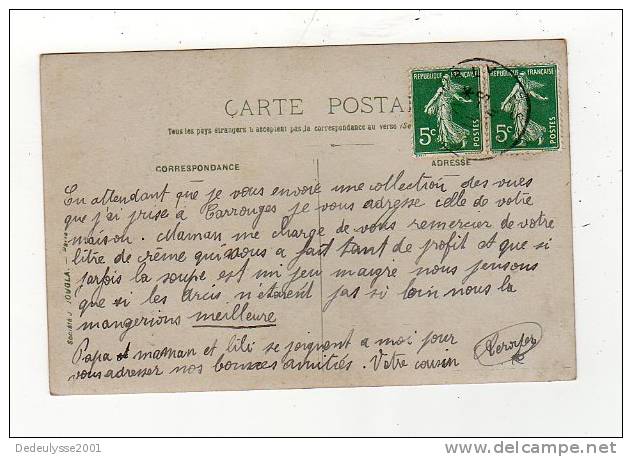 RÉPUBLIQUE FRANÇAISE
5c POSTES
RÉPUBLIQUE FRANÇAISE
5c POSTES
CARTE POSTA
Tous les pays étrangers n'acceptent pas la correspondance au verso (Se
CORRESPONDANCE
ADRESSE
En attendant que je vous envoie une collection des vues
que j'ai prise à Carrouges je vous adresse celle de votre
maison. Maman me charge de vous remercier de votre
litre de crème qui nous a fait tant de profit et que si
parfois la soupe est un peu maigre nous pensons
que si les Arcis n'étaient pas si loin nous la
mangerions meilleure
Papa et maman et lili se joignent a moi pour
vous adresser nos bonnes amitiés. Votre cousin
SOCIÉTÉ JOUGLA
Dedeulysse2001
www.delcampe.net